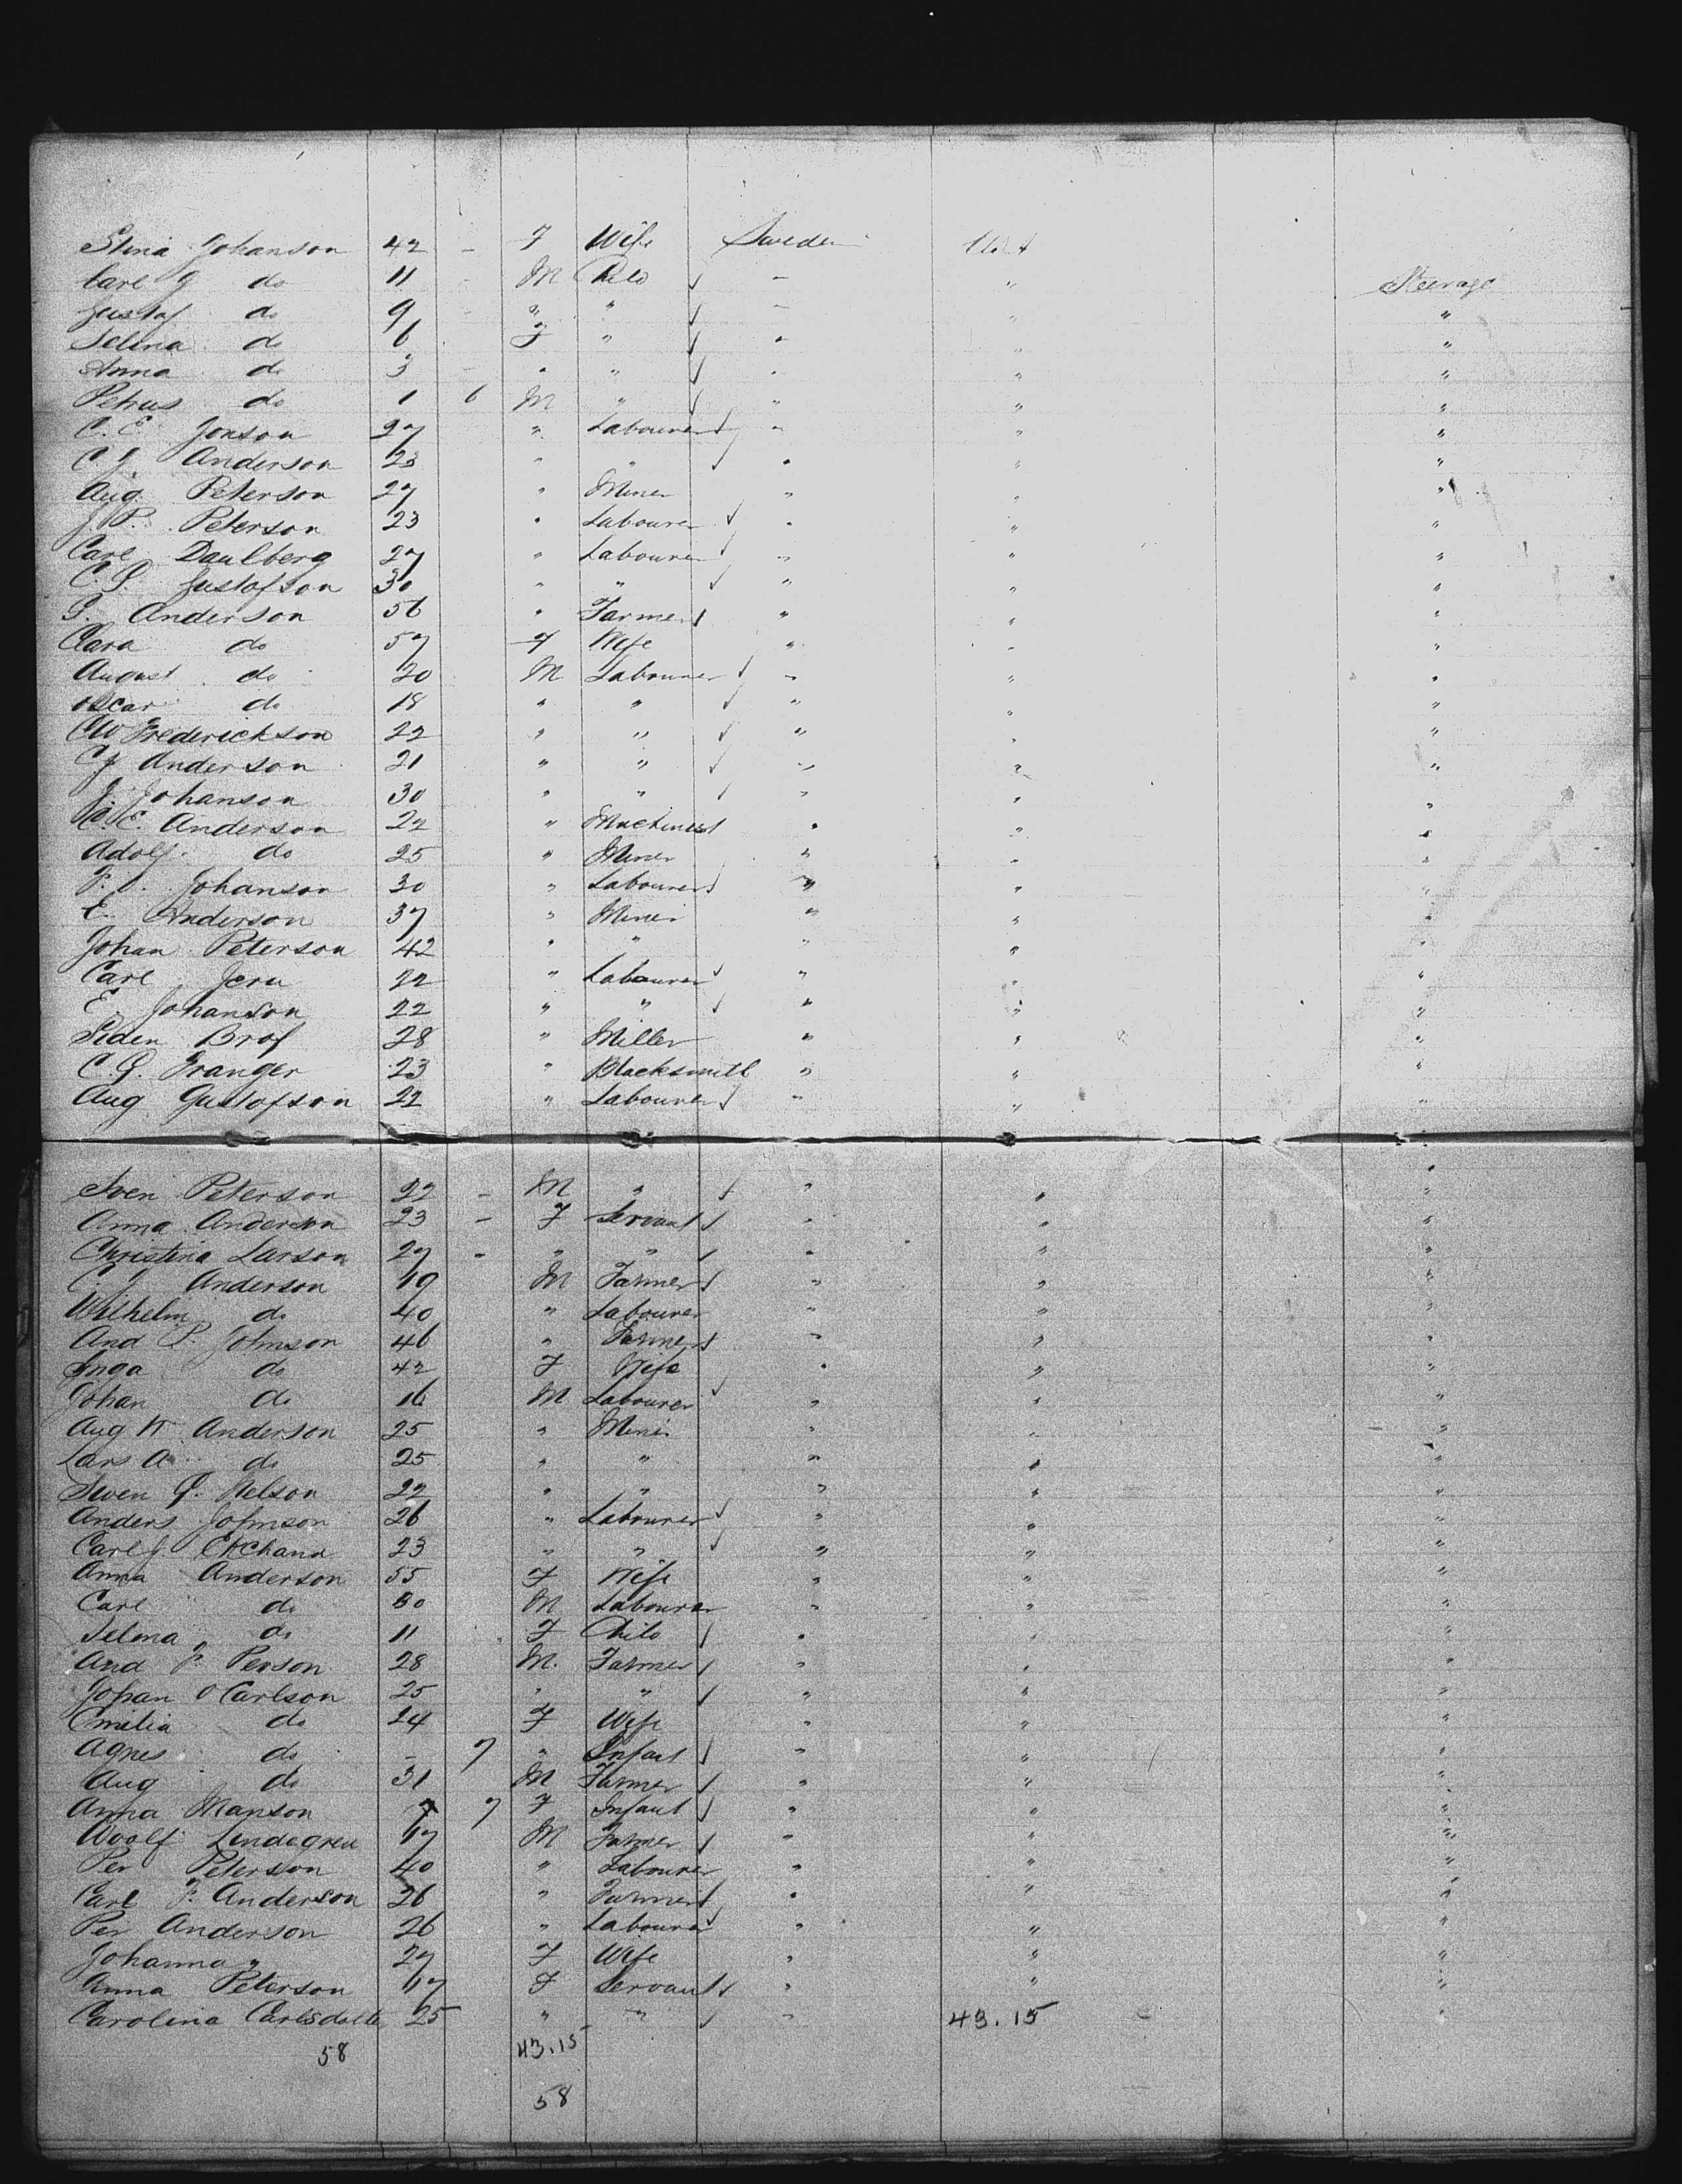 Stina Johanson 42 - F Wife Sweden
Carl G do 11 - M Child " " Steerage
Gustaf do 9 " " " " "
Selina do 6 F " " " "
Anna do 3 " " " " "
Petrus do 1 6 M " " " "
C. E. Jonson 27 " Labourer " " "
C. J. Anderson 23 " " " " "
Aug. Peterson 27 " Miner " " "
J. P. Peterson 23 " Labourer " " "
Carl Daulberg 27 " Labourer " " "
C. G. Gustofson 30 " " " " "
S. Anderson 56 " Farmer " " "
Clara do 57 F Wife " " "
August do 20 M Labourer " " "
Oscar do 18 " " " " "
CW Frederickson 22 " " " " "
CJ Anderson 21 " " " " "
J. Johanson 30 " " " " "
C. E. Anderson 22 " Machinist " " "
Adolf do 25 " Miner " " "
P. J. Johanson 30 " Labourer " " "
E. Anderson 37 " Miner " " "
Johan Peterson 42 " " " " "
Carl Jern 22 " Labourer " " "
E. Johanson 22 " " " " "
Peden Brof 28 " Miller " " "
C. G. Granger 23 " Blacksmith " " "
Aug Gustofson 22 " Labourer " " "
Sven Peterson 22 - M " " " "
Anna Anderson 23 - F Servant " " "
Christina Larson 27 - " " " " "
C. J. Anderson 19 M Farmer " " "
Wilhelm do 40 " Labourer " " "
And P. Johnson 46 " Farmer " " "
Inga do 42 F Wife " " "
Johan do 16 M Labourer " " "
Aug K Anderson 25 " Miner " " "
Lars A do 25 " " " " "
Swen G. Nelson 22 " " " " "
Anders Johnson 26 " Labourer " " "
Carl J 23 " " " " "
Anna Anderson 55 F Wife " " "
Carl do 30 M Labourer " " "
Selma do 11 F Child " " "
And P. Person 28 M. Farmer " " "
Johan O Carlson 25 " " " " "
Emilia do 24 F Wife " " "
Agnes do - 7 " Infant " " "
Aug do 31 M Farmer " " "
Anna Manson 7 F Infant " " "
Woolf Lindegren 17 M Farmer " " "
Per Peterson 40 " Labourer " " "
Carl P. Anderson 26 " Farmer " " "
Per Anderson 26 " Labourer " " "
Johanna " 27 F Wife " " "
Anna Peterson 17 F Servant " " "
Carolina Carlsdotte 25 " " " 43.15 "
58 43.15
58